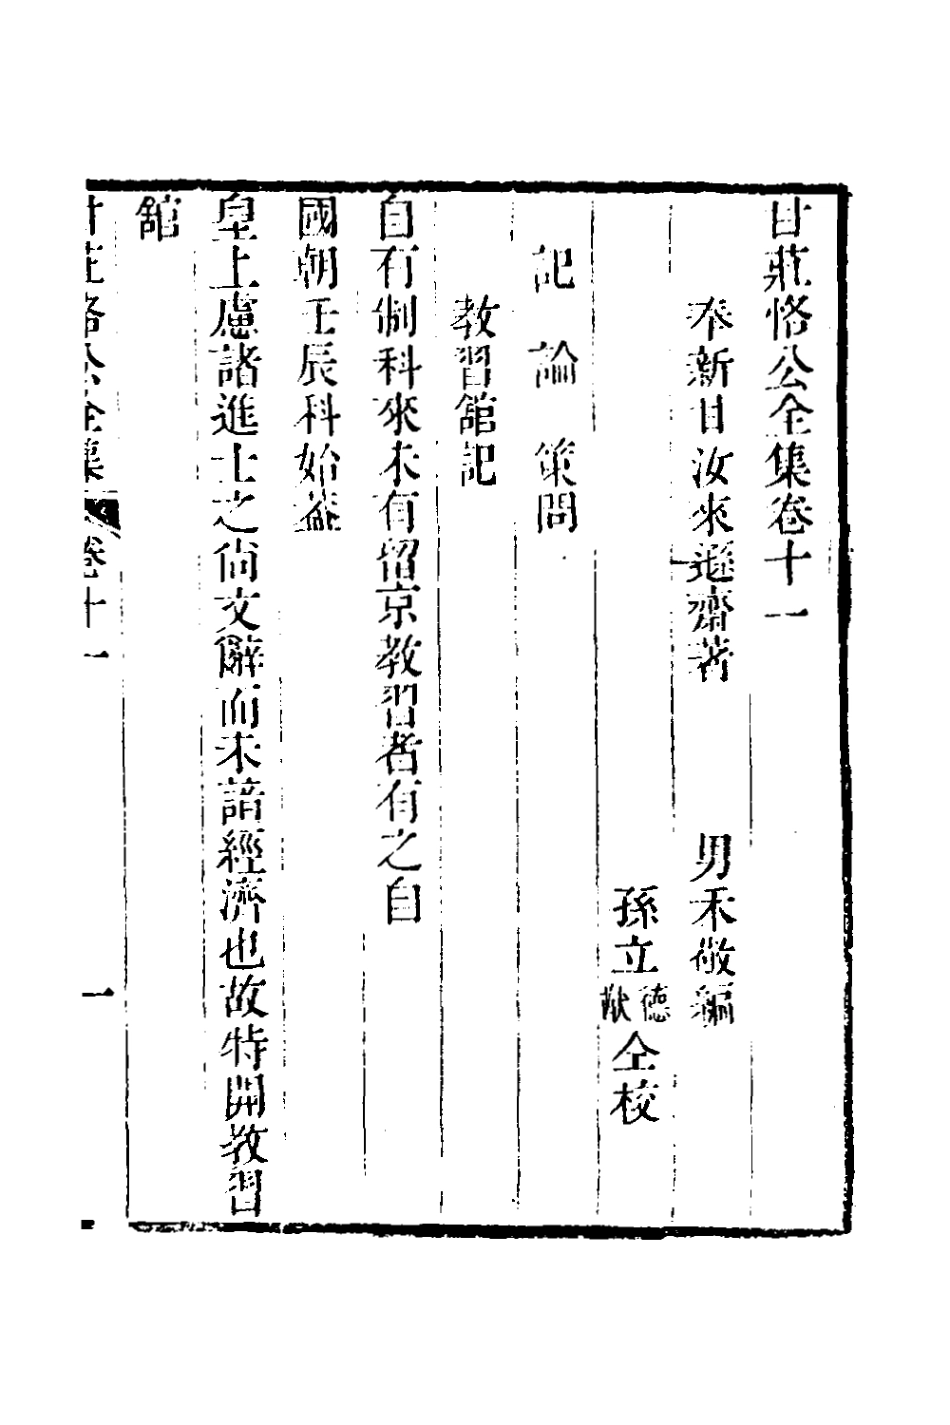 甘莊恪公全集卷十一
奉新甘汝來遜齋著 男禾敬編
孫立德猷仝校
記 論 策問
教習館記
自有制科來未有留京教習者有之自
國朝壬辰科始蓋
皇上慮諸進士之尚文辭而未諳經濟也故特開教習
舘
甘莊恪公全集 卷十一 一